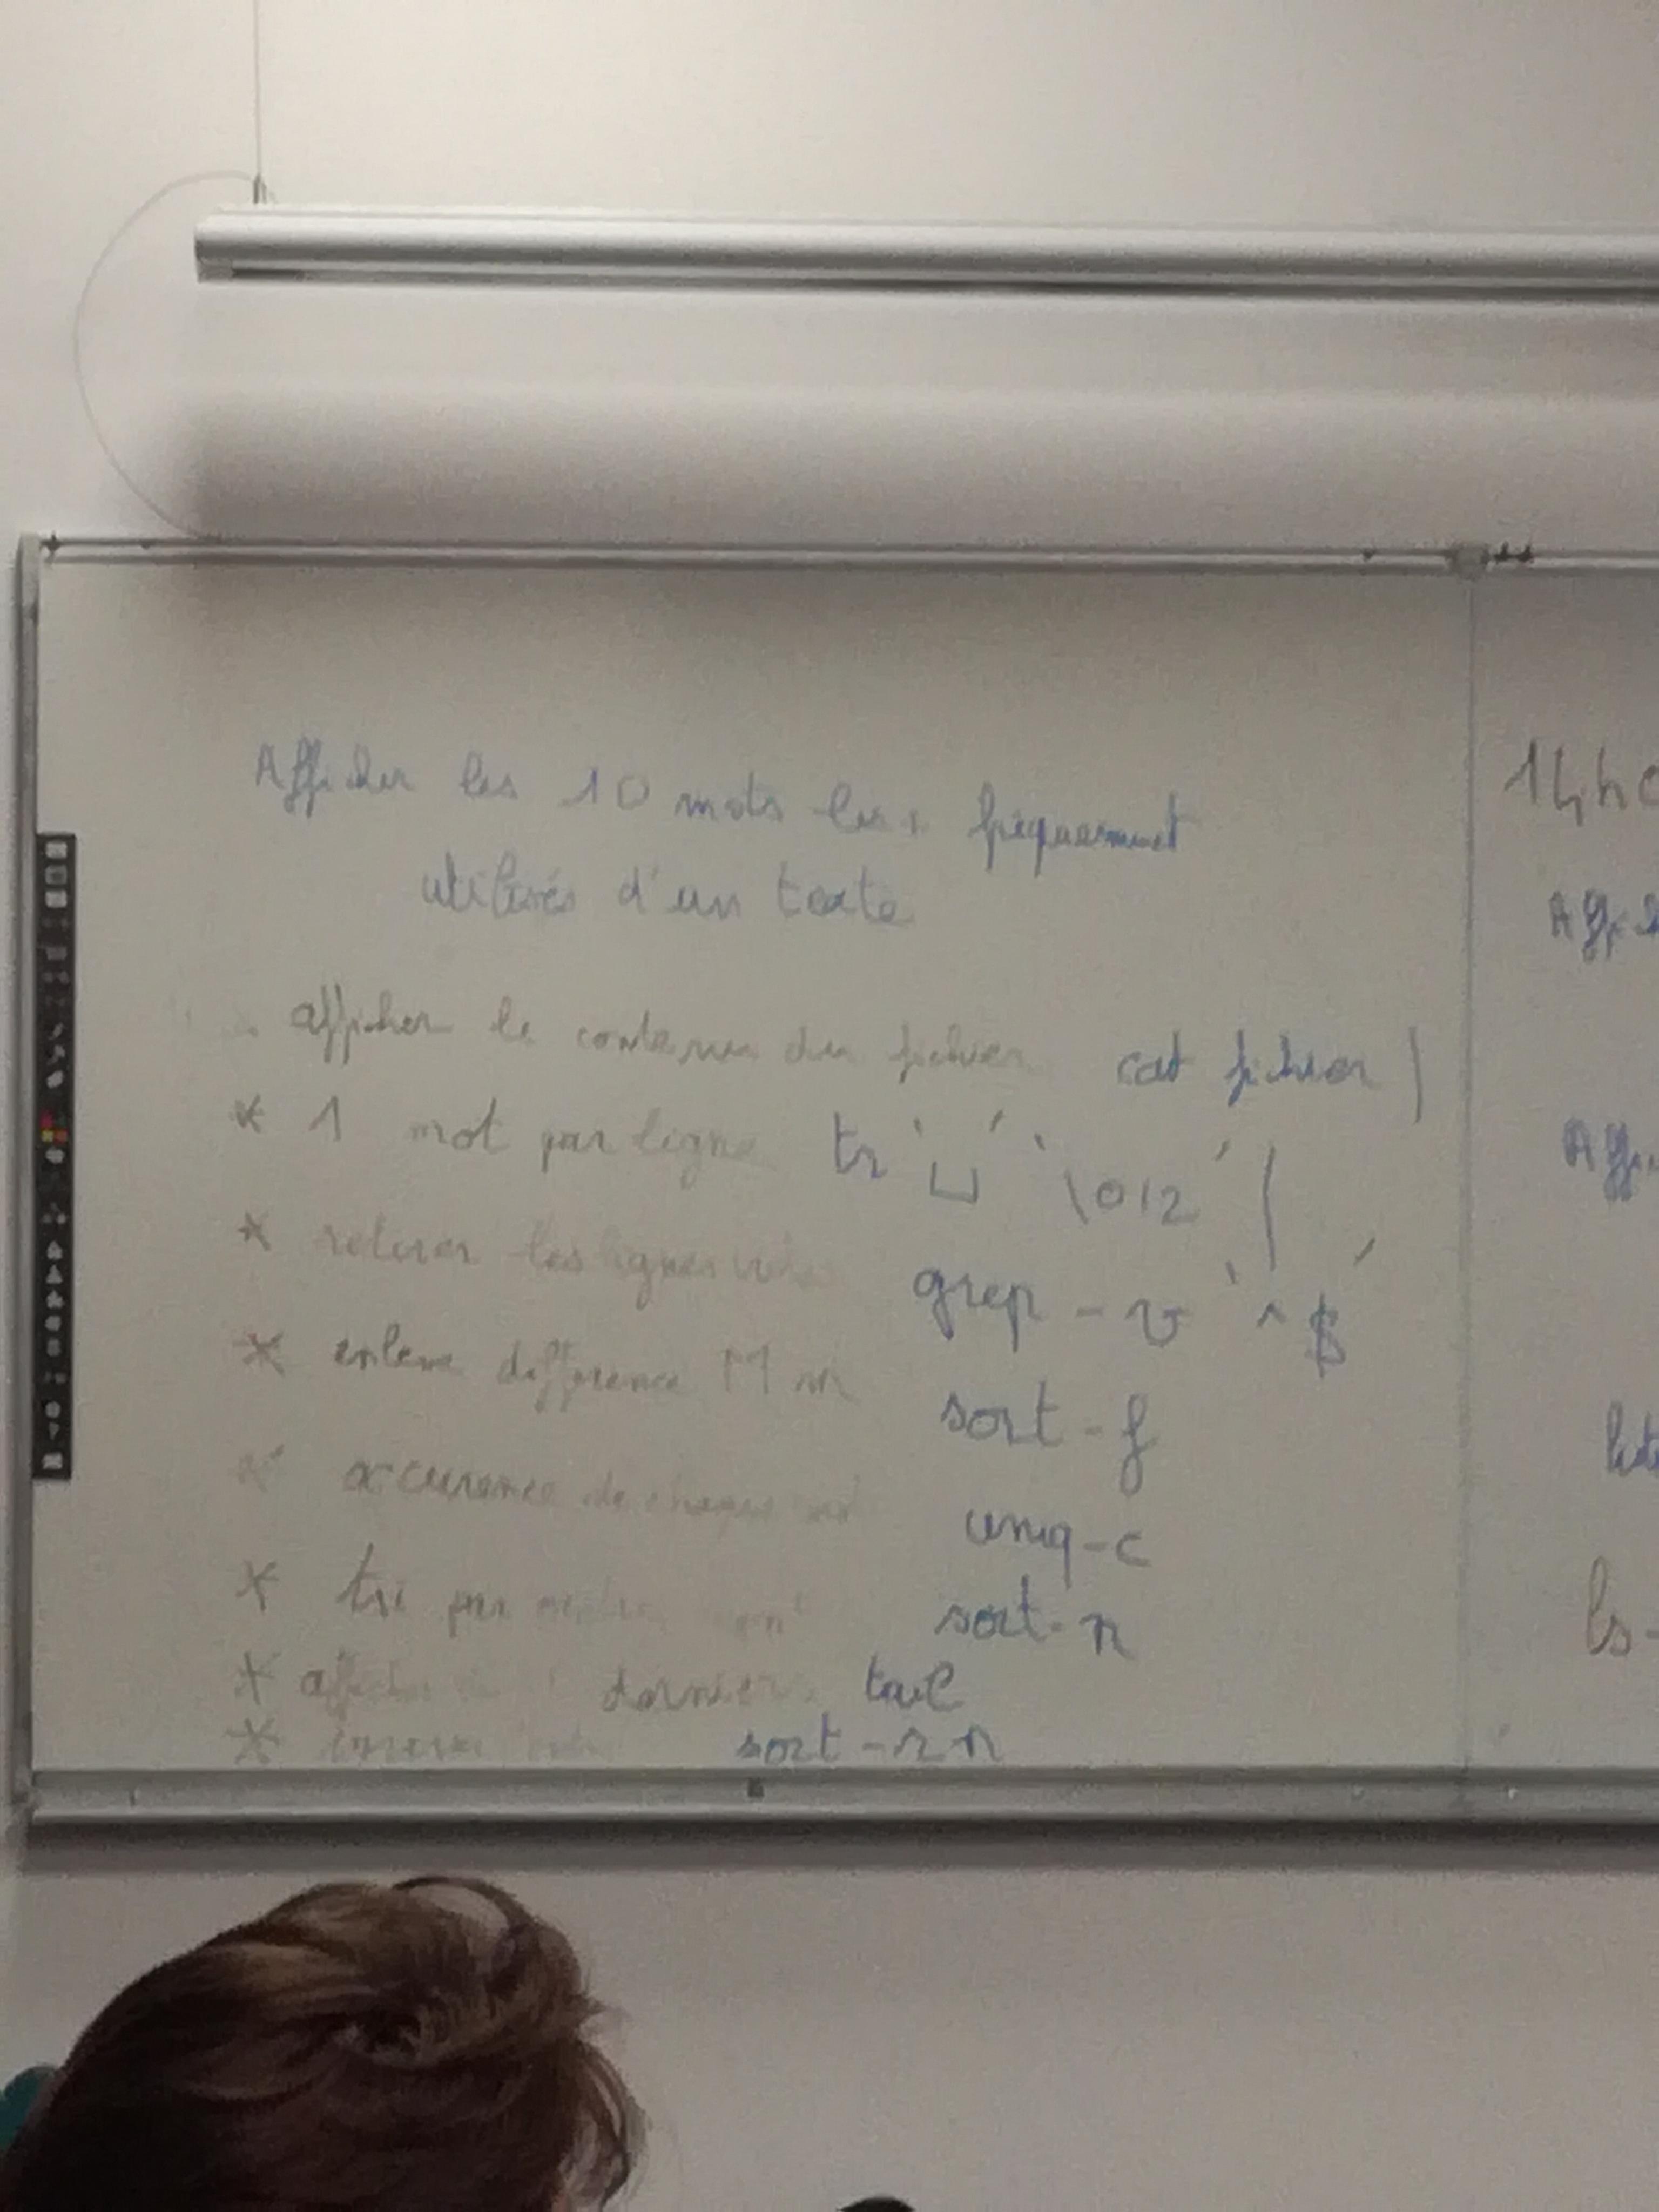 Afficher les 10 mots les + fréquemment
utilisés d'un texte
. afficher le contenu du fichier cat fichier |
* 1 mot par ligne tr '␣' '\012' |
* retirer les lignes vides grep -v '^$'
* enlever différence M m sort -f
* occurence de chaque mot uniq -c
* tri par ordre sort -n
* afficher derniers tail
* inverser sort -rn
14h0
Affi
Affi
ls-